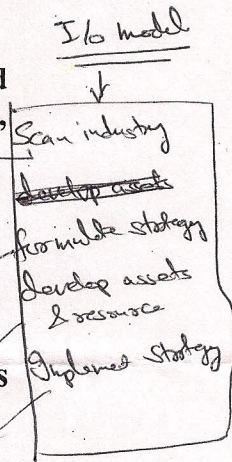 I/o model
Scan industry
develop assets
formulate strategy
develop assets
& resource
Implement strategy